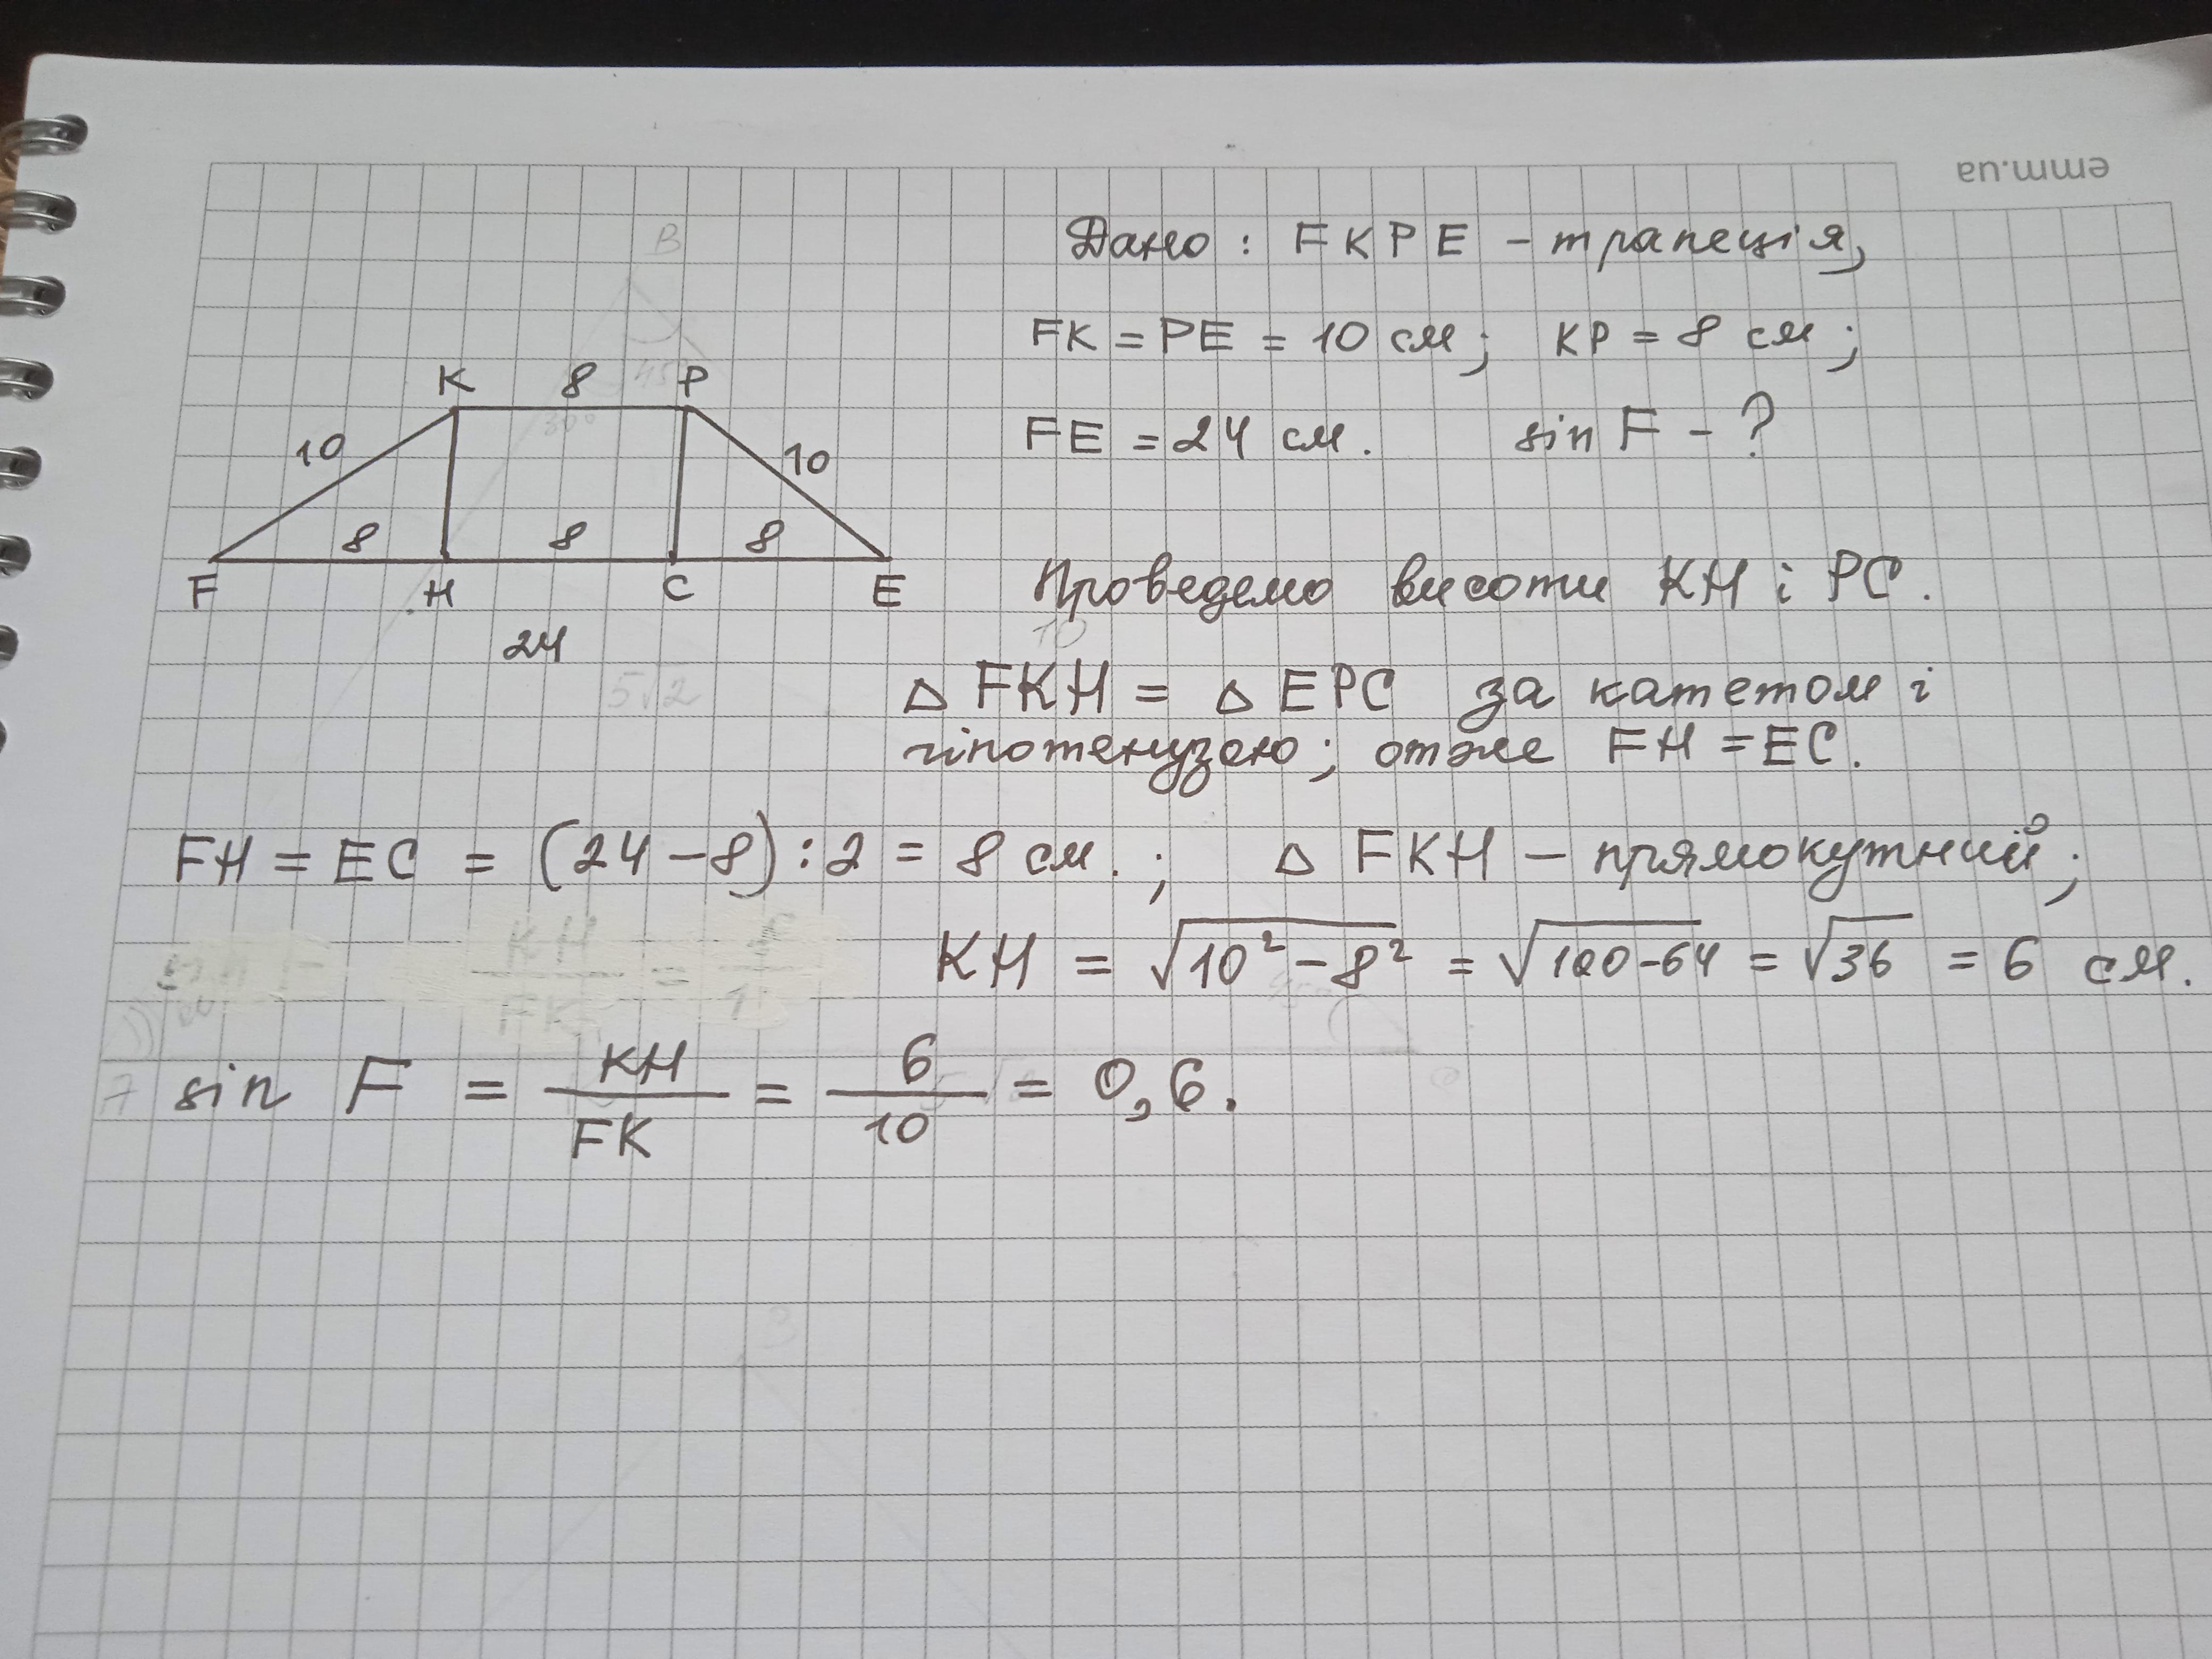 emm.ua
Дано: FKPE – трапеція,
FK = PE = 10 см; KP = 8 см;
FE = 24 см. sin F – ?
K 8 P
10 10
8 8 8
F H C E
24
Проведемо висоти KH і PC.
△ FKH = △ EPC за катетом і
гіпотенузою; отже FH = EC.
FH = EC = (24 – 8) : 2 = 8 см.; △ FKH – прямокутний;
KH = √(10² – 8²) = √(100 – 64) = √36 = 6 см.
sin F = KH/FK = 6/10 = 0,6.